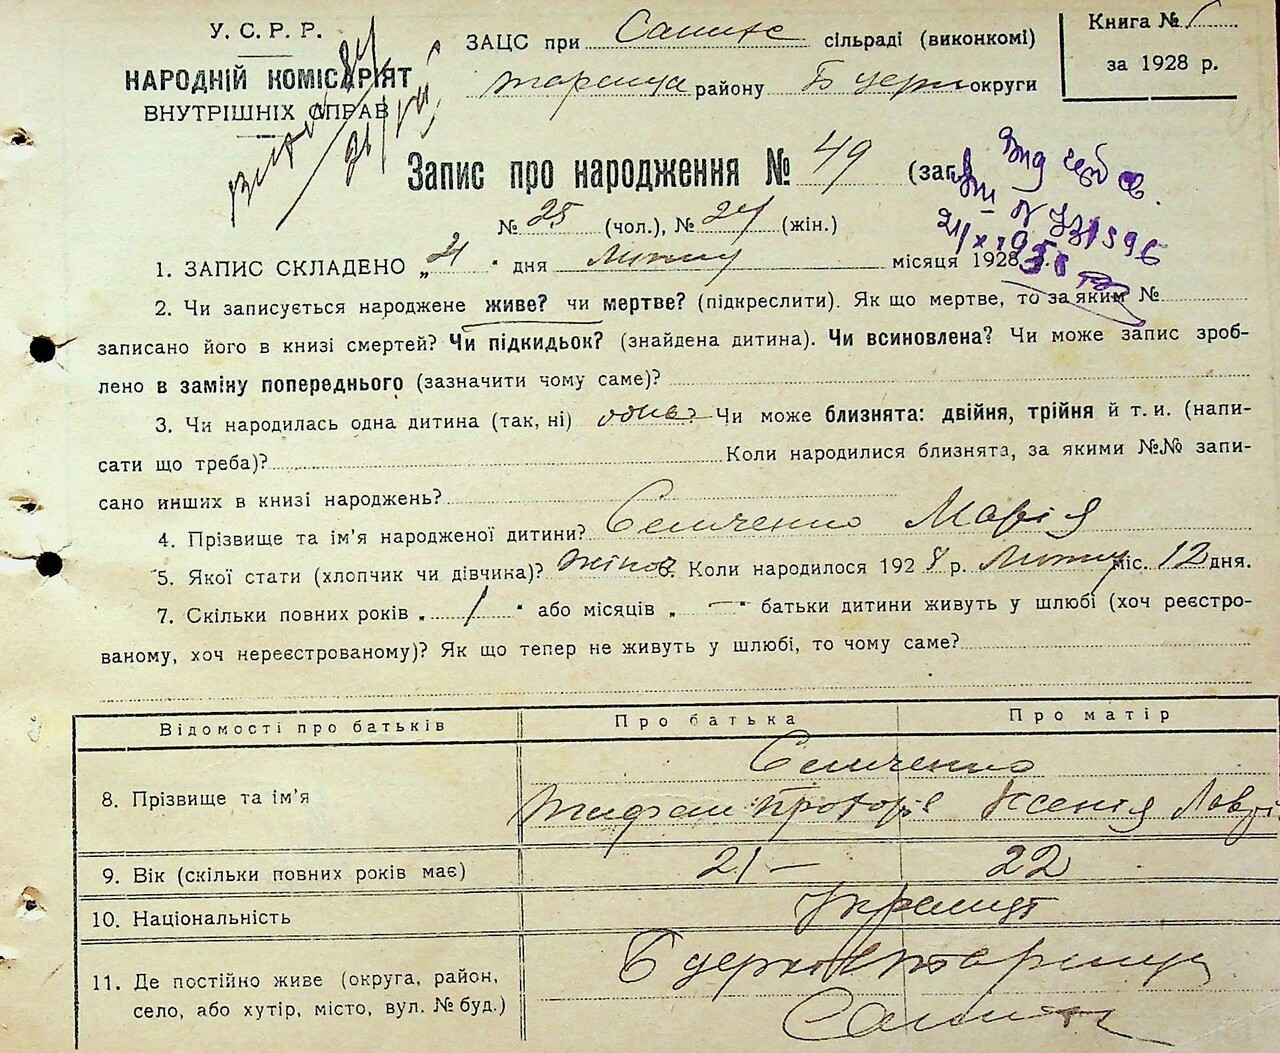 У. С. Р. Р.
НАРОДНІЙ КОМІСАРІЯТ
ВНУТРІШНІХ СПРАВ
ЗАЦС при сільраді (виконкомі)
району Б церк округи
Книга № 1
за 1928 р.
Запис про народження № 49 (заг.
№ 25 (чол.), № 24 (жін.)
Вид
1. ЗАПИС СКЛАДЕНО „21“ дня Лютого місяця 1928 р.
2. Чи записується народжене живе? чи мертве? (підкреслити). Як що мертве, то за яким №
записано його в книзі смертей? Чи підкидьок? (знайдена дитина). Чи всиновлена? Чи може запис зроб-
лено в заміну попереднього (зазначити чому саме)?
3. Чи народилась одна дитина (так, ні) одна Чи може близнята: двійня, трійня й т. и. (напи-
сати що треба)? Коли народилися близнята, за якими №№ запи-
сано инших в книзі народжень?
4. Прізвище та ім'я народженої дитини? Марія
5. Якої стати (хлопчик чи дівчина)? жіноч 6. Коли народилося 1928 р. Лютого міс. 12 дня.
7. Скільки повних років „1“ або місяців „—“ батьки дитини живуть у шлюбі (хоч реєстро-
ваному, хоч нереєстрованому)? Як що тепер не живуть у шлюбі, то чому саме?
Відомості про батьків Про батька Про матір
8. Прізвище та ім'я
Ксенія
9. Вік (скільки повних років має) 21 — 22
10. Національність
11. Де постійно живе (округа, район,
село, або хутір, місто, вул. № буд.)